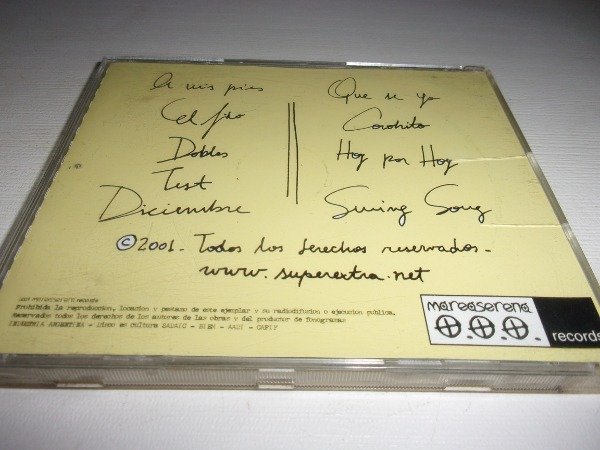 A mis pies
El frío
Dobles
Test
Diciembre
Que se yo
Corchito
Hoy por Hoy
Swing Song
© 2001. Todos los derechos reservados -
www.superextra.net
2001 mareaserena records
Prohibida la reproduccion, locacion y prestamo de este ejemplar y su radiodifusion o ejecucion publica.
Reservados todos los derechos de los autores de las obras y del productor de fonogramas
INDUSTRIA ARGENTINA - Disco es cultura SADAIC - BIEM - AADI - CAPIF
mareaserena
records